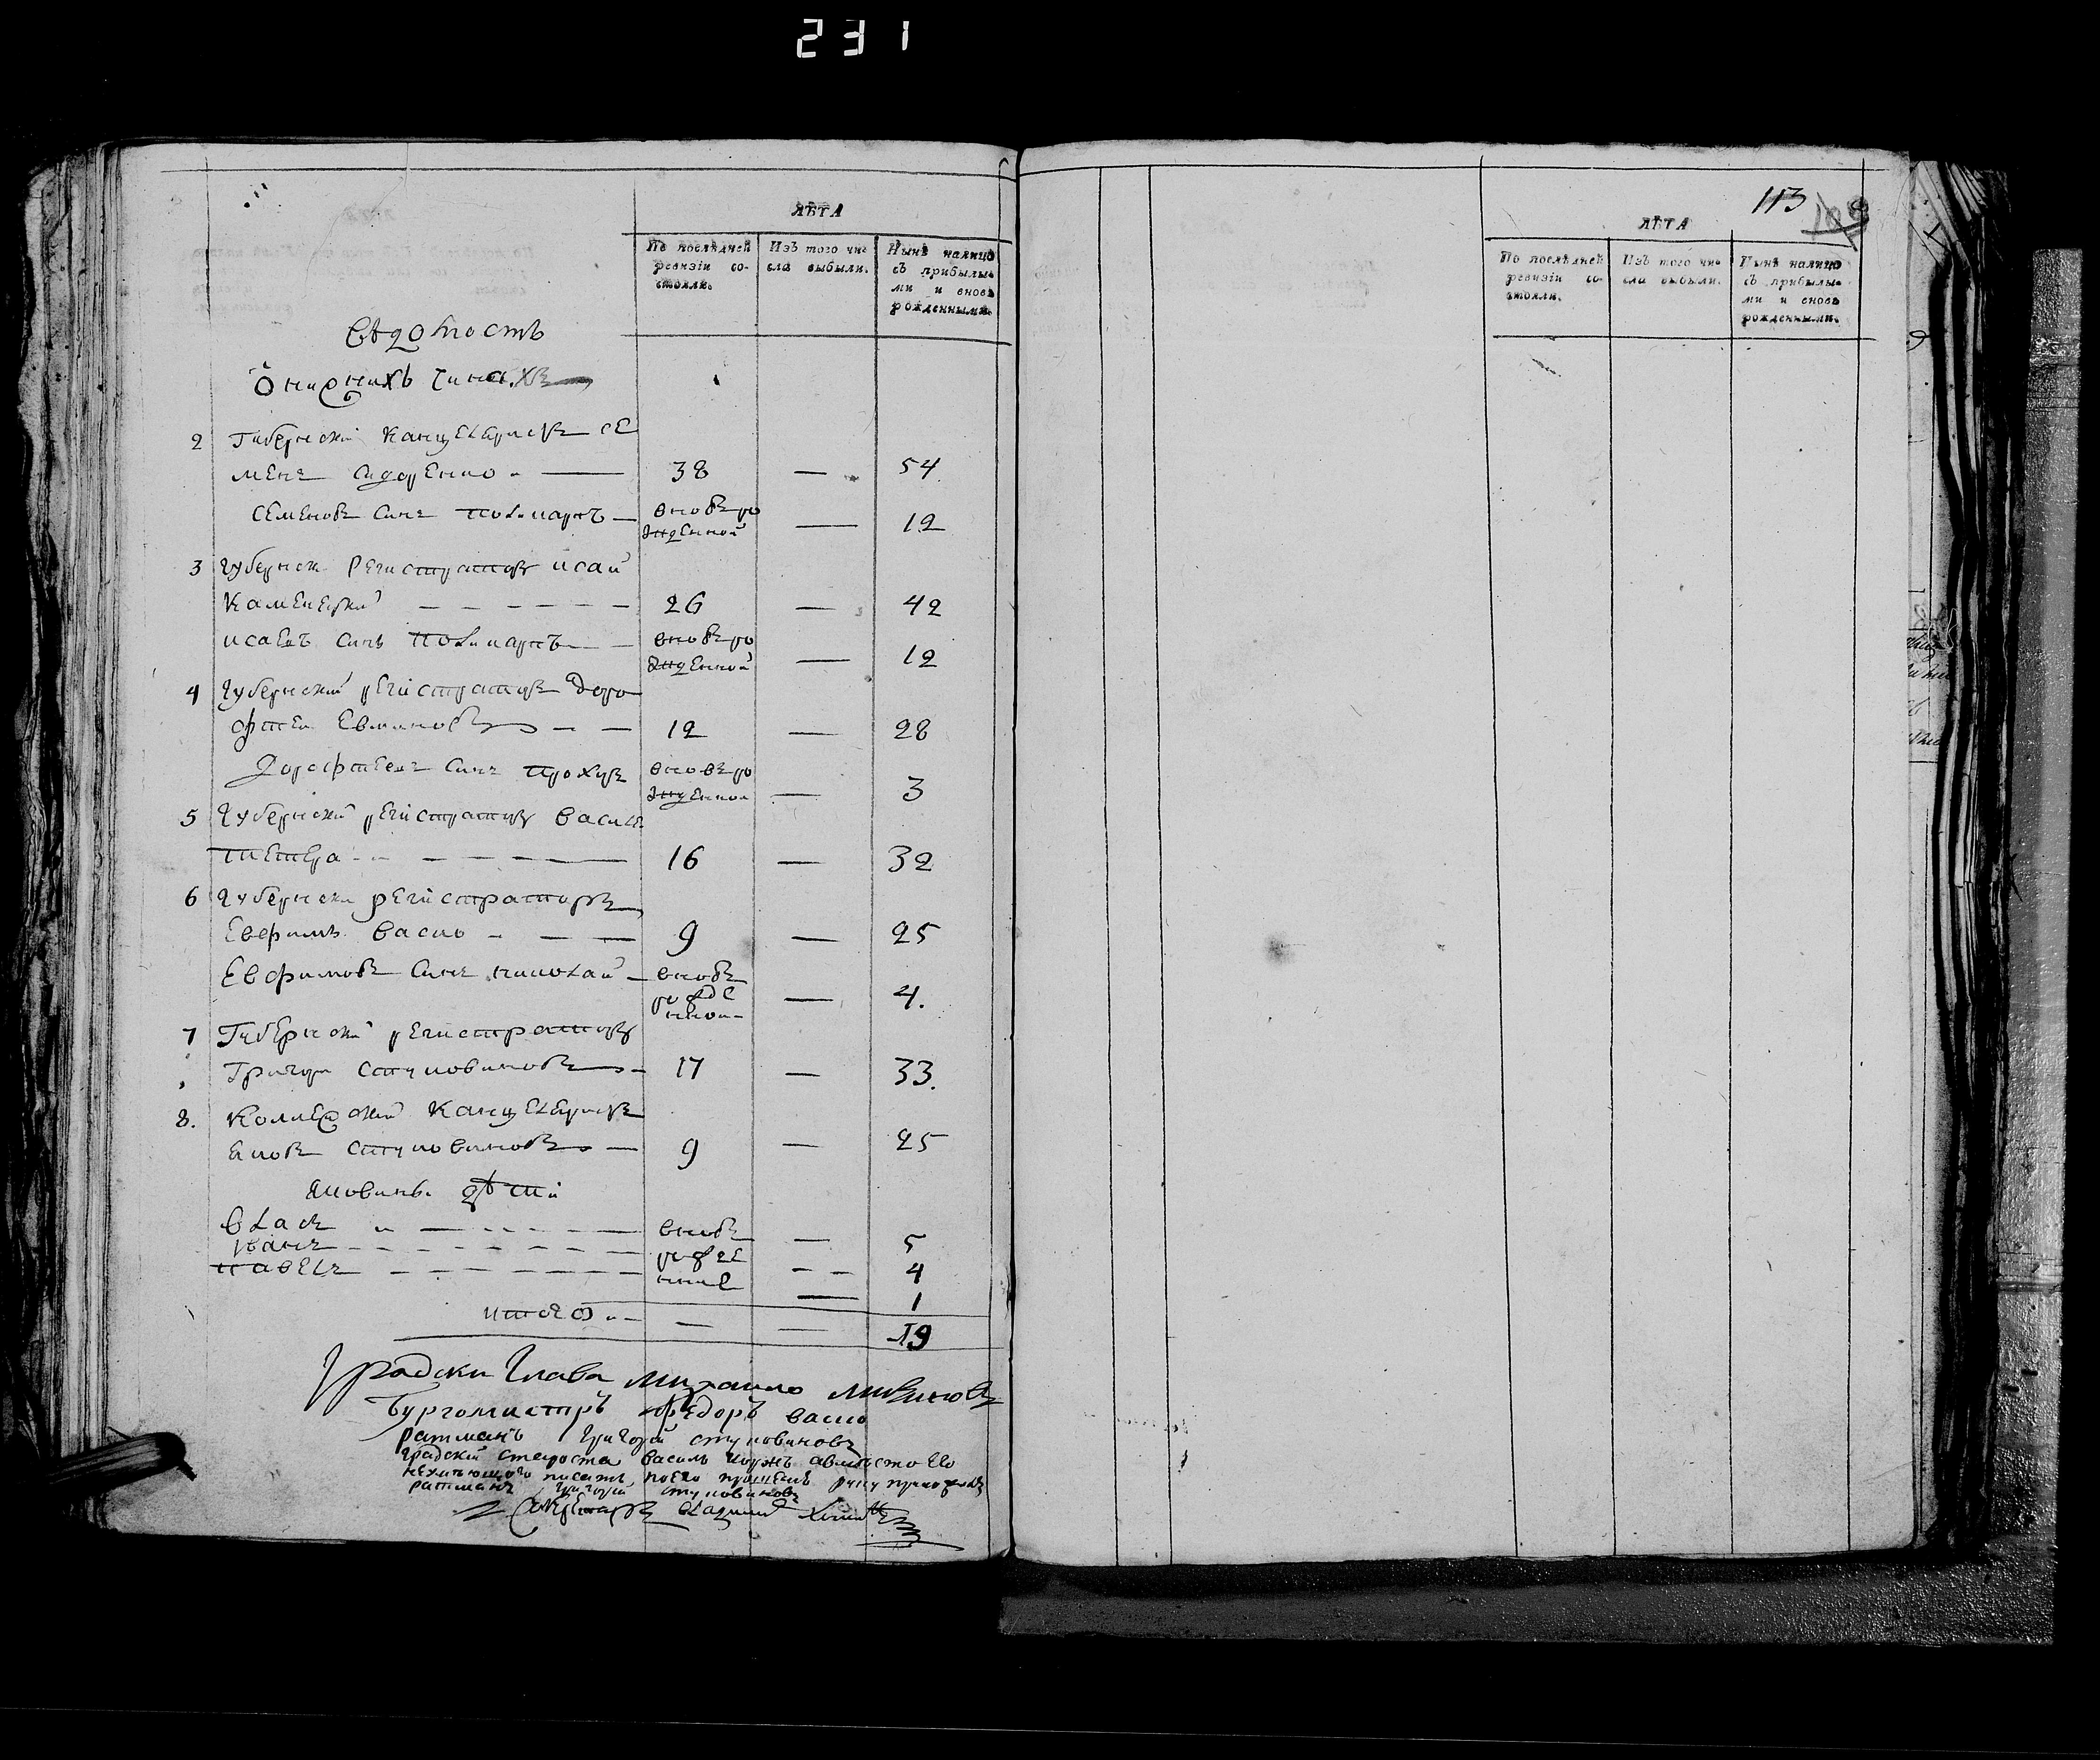 231
ЛѢТА
По послѣдней ревизіи состояли.
Изъ того числа выбыли.
Нынѣ налицо съ прибылыми и вновь рожденными.
вѣдомость
о нижнихъ чинахъ
2 Губернски канцеляристъ се
менъ Сидоренко 38 — 54
семеновъ синъ поликарпъ — вновъ ро жденной — 12
3 губернск регистраторъ исаи
Каменецкий — 26 — 42
исаевъ синъ поликарпъ — вновъ ро жденной — 12
4 губернский регистраторъ доро
фтеи 12 — 28
дорофтеевъ синъ прохоръ вновъ ро жденной — 3
5 губернский регистраторъ василь
петера — 16 — 32
6 губернски регистраторъ
Евфимъ васко — 9 — 25
Евфимовъ синъ николаи — вновъ рожде нной — 4.
7 Губернский регистраторъ
Григори ступовиковъ — 17 — 33.
8. Колежский канцеляристъ
яковъ ступовиковъ — 9 — 25
яковвы дѣти
власъ — вновъ — 5
иванъ — рожде — 4
павелъ — нние — 1
итого — — — 19
градски глава михаило
Бургомистръ Федоръ васко
ратманъ григорій ступовиковъ
градский староста василь коржъ авмѣсто его
неумѣющого писать поего прошению руку приложилъ
ратманъ григорій ступовиковъ
Секретаръ
113
ЛѢТА
По послѣдней ревизіи состояли.
Изъ того числа выбыли.
Нынѣ налицо съ прибылыми и вновь рожденными.